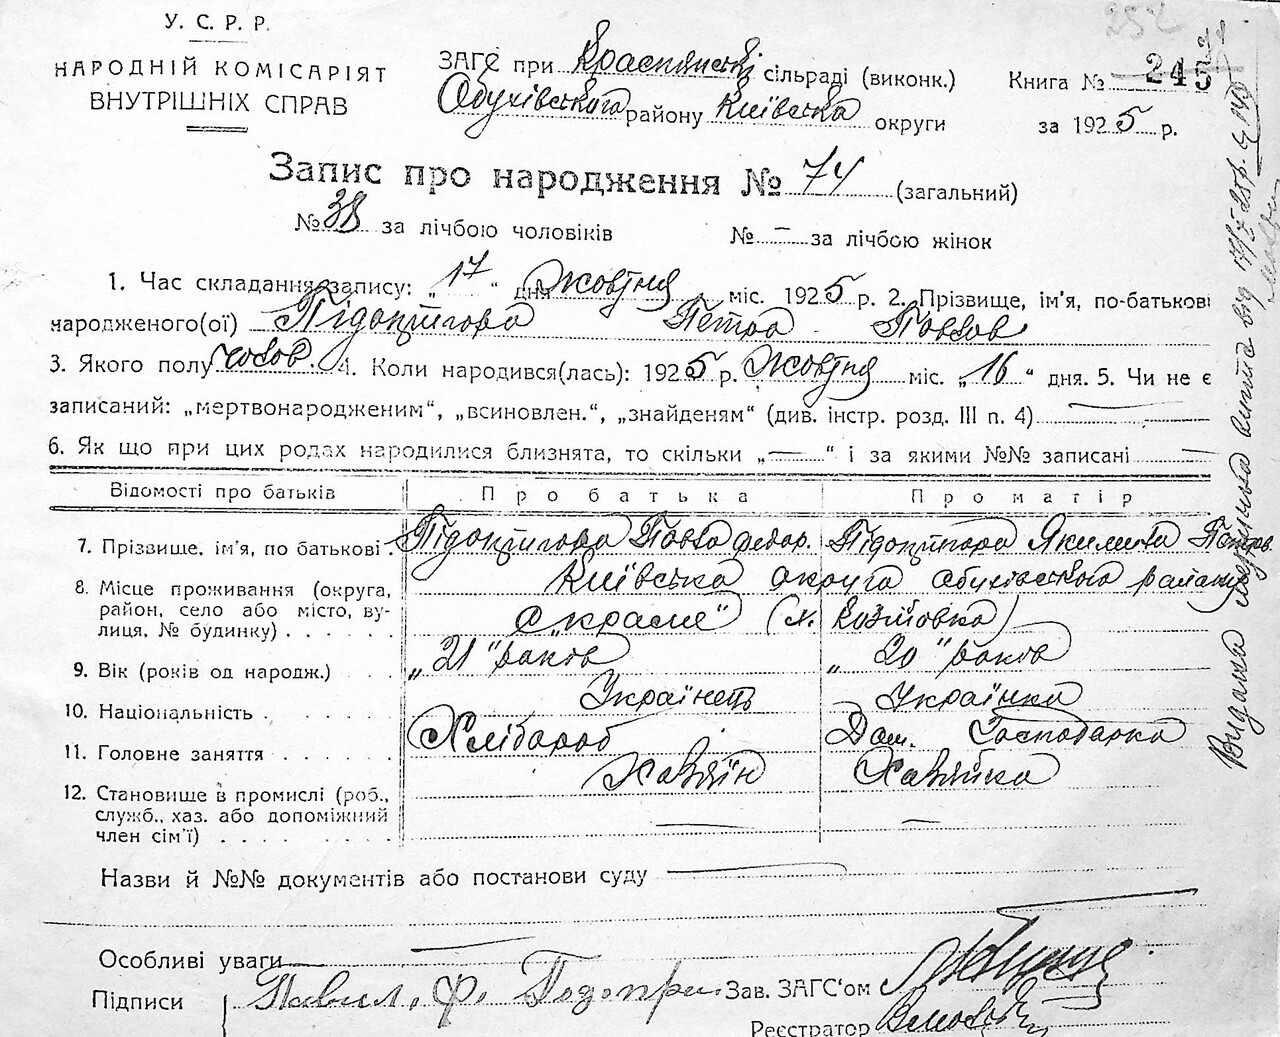 У. С. Р. Р.
НАРОДНІЙ КОМІСАРІЯТ
ВНУТРІШНІХ СПРАВ
ЗАГС при Краснянській сільраді (виконк.)
Обухівського району Київська округи
Книга № 245
за 1925 р.
252
Запис про народження № 74 (загальний)
№ 38 за лічбою чоловіків № — за лічбою жінок
1. Час складання запису: „17“ дня жовтня міс. 1925 р. 2. Прізвище, ім'я, по-батькові
народженого(ої) Підопригора Петро Павлов
3. Якого полу чолов. 4. Коли народився(лась): 1925 р. жовтня міс. „16“ дня. 5. Чи не є
записаний: „мертвонародженим“, „всиновлен.“, „знайденям“ (див. інстр. розд. III п. 4) —
6. Як що при цих родах народилися близнята, то скільки „—“ і за якими №№ записані —
Відомості про батьків Про батька Про матір
7. Прізвище, ім'я, по батькові. Підопригора Павло Федор. Підопригора Якилина Петров.
8. Місце проживання (округа, район, село або місто, вулиця, № будинку) Київська округа Обухівського району
(х. Козіївка)
9. Вік (років од народж.) „21“ років „20“ років
10. Національність Українець Українка
11. Головне заняття Хлібороб Дом. Господарка
12. Становище в промислі (роб., служб., хаз. або допоміжний член сім'ї) Хазяїн Хазяйка
Назви й №№ документів або постанови суду —
Особливі уваги —
Підписи Павил. Ф. Подопри. Зав. ЗАГС'ом
Реєстратор
Видана